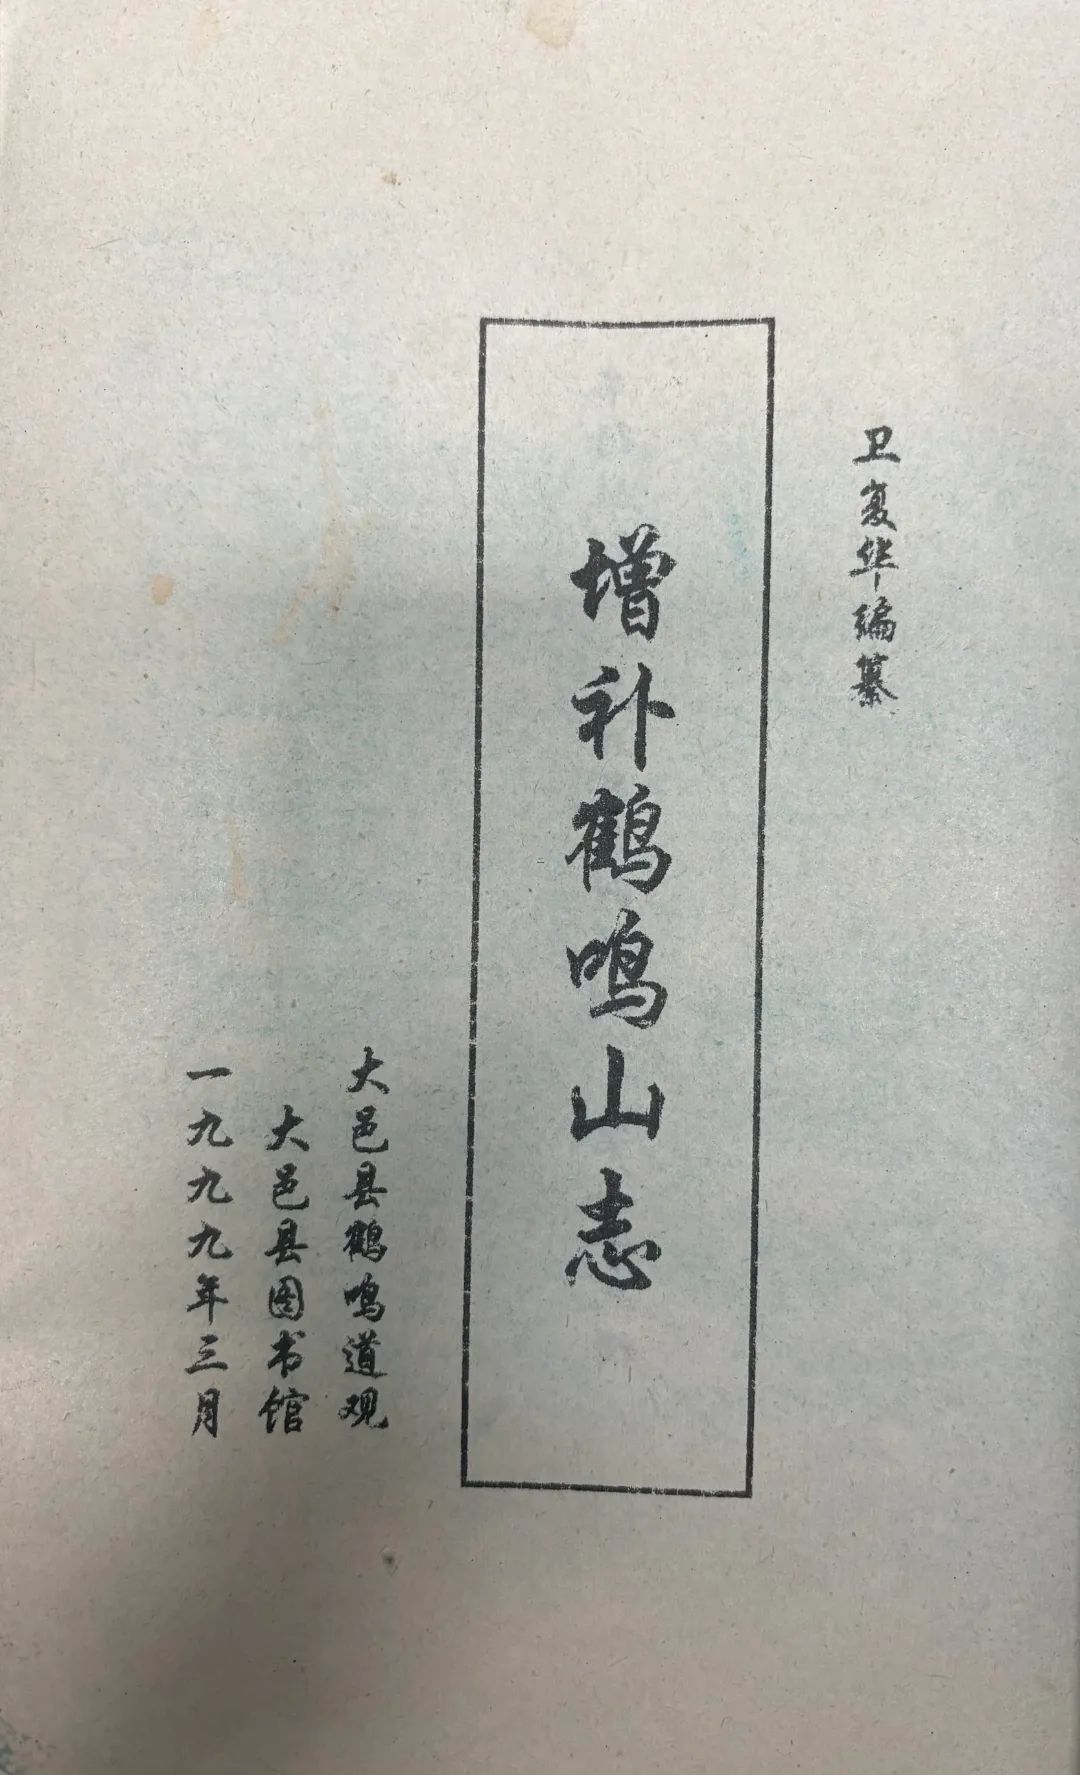 卫复华编纂
增补鹤鸣山志
大邑县鹤鸣道观
大邑县图书馆
一九九九年三月